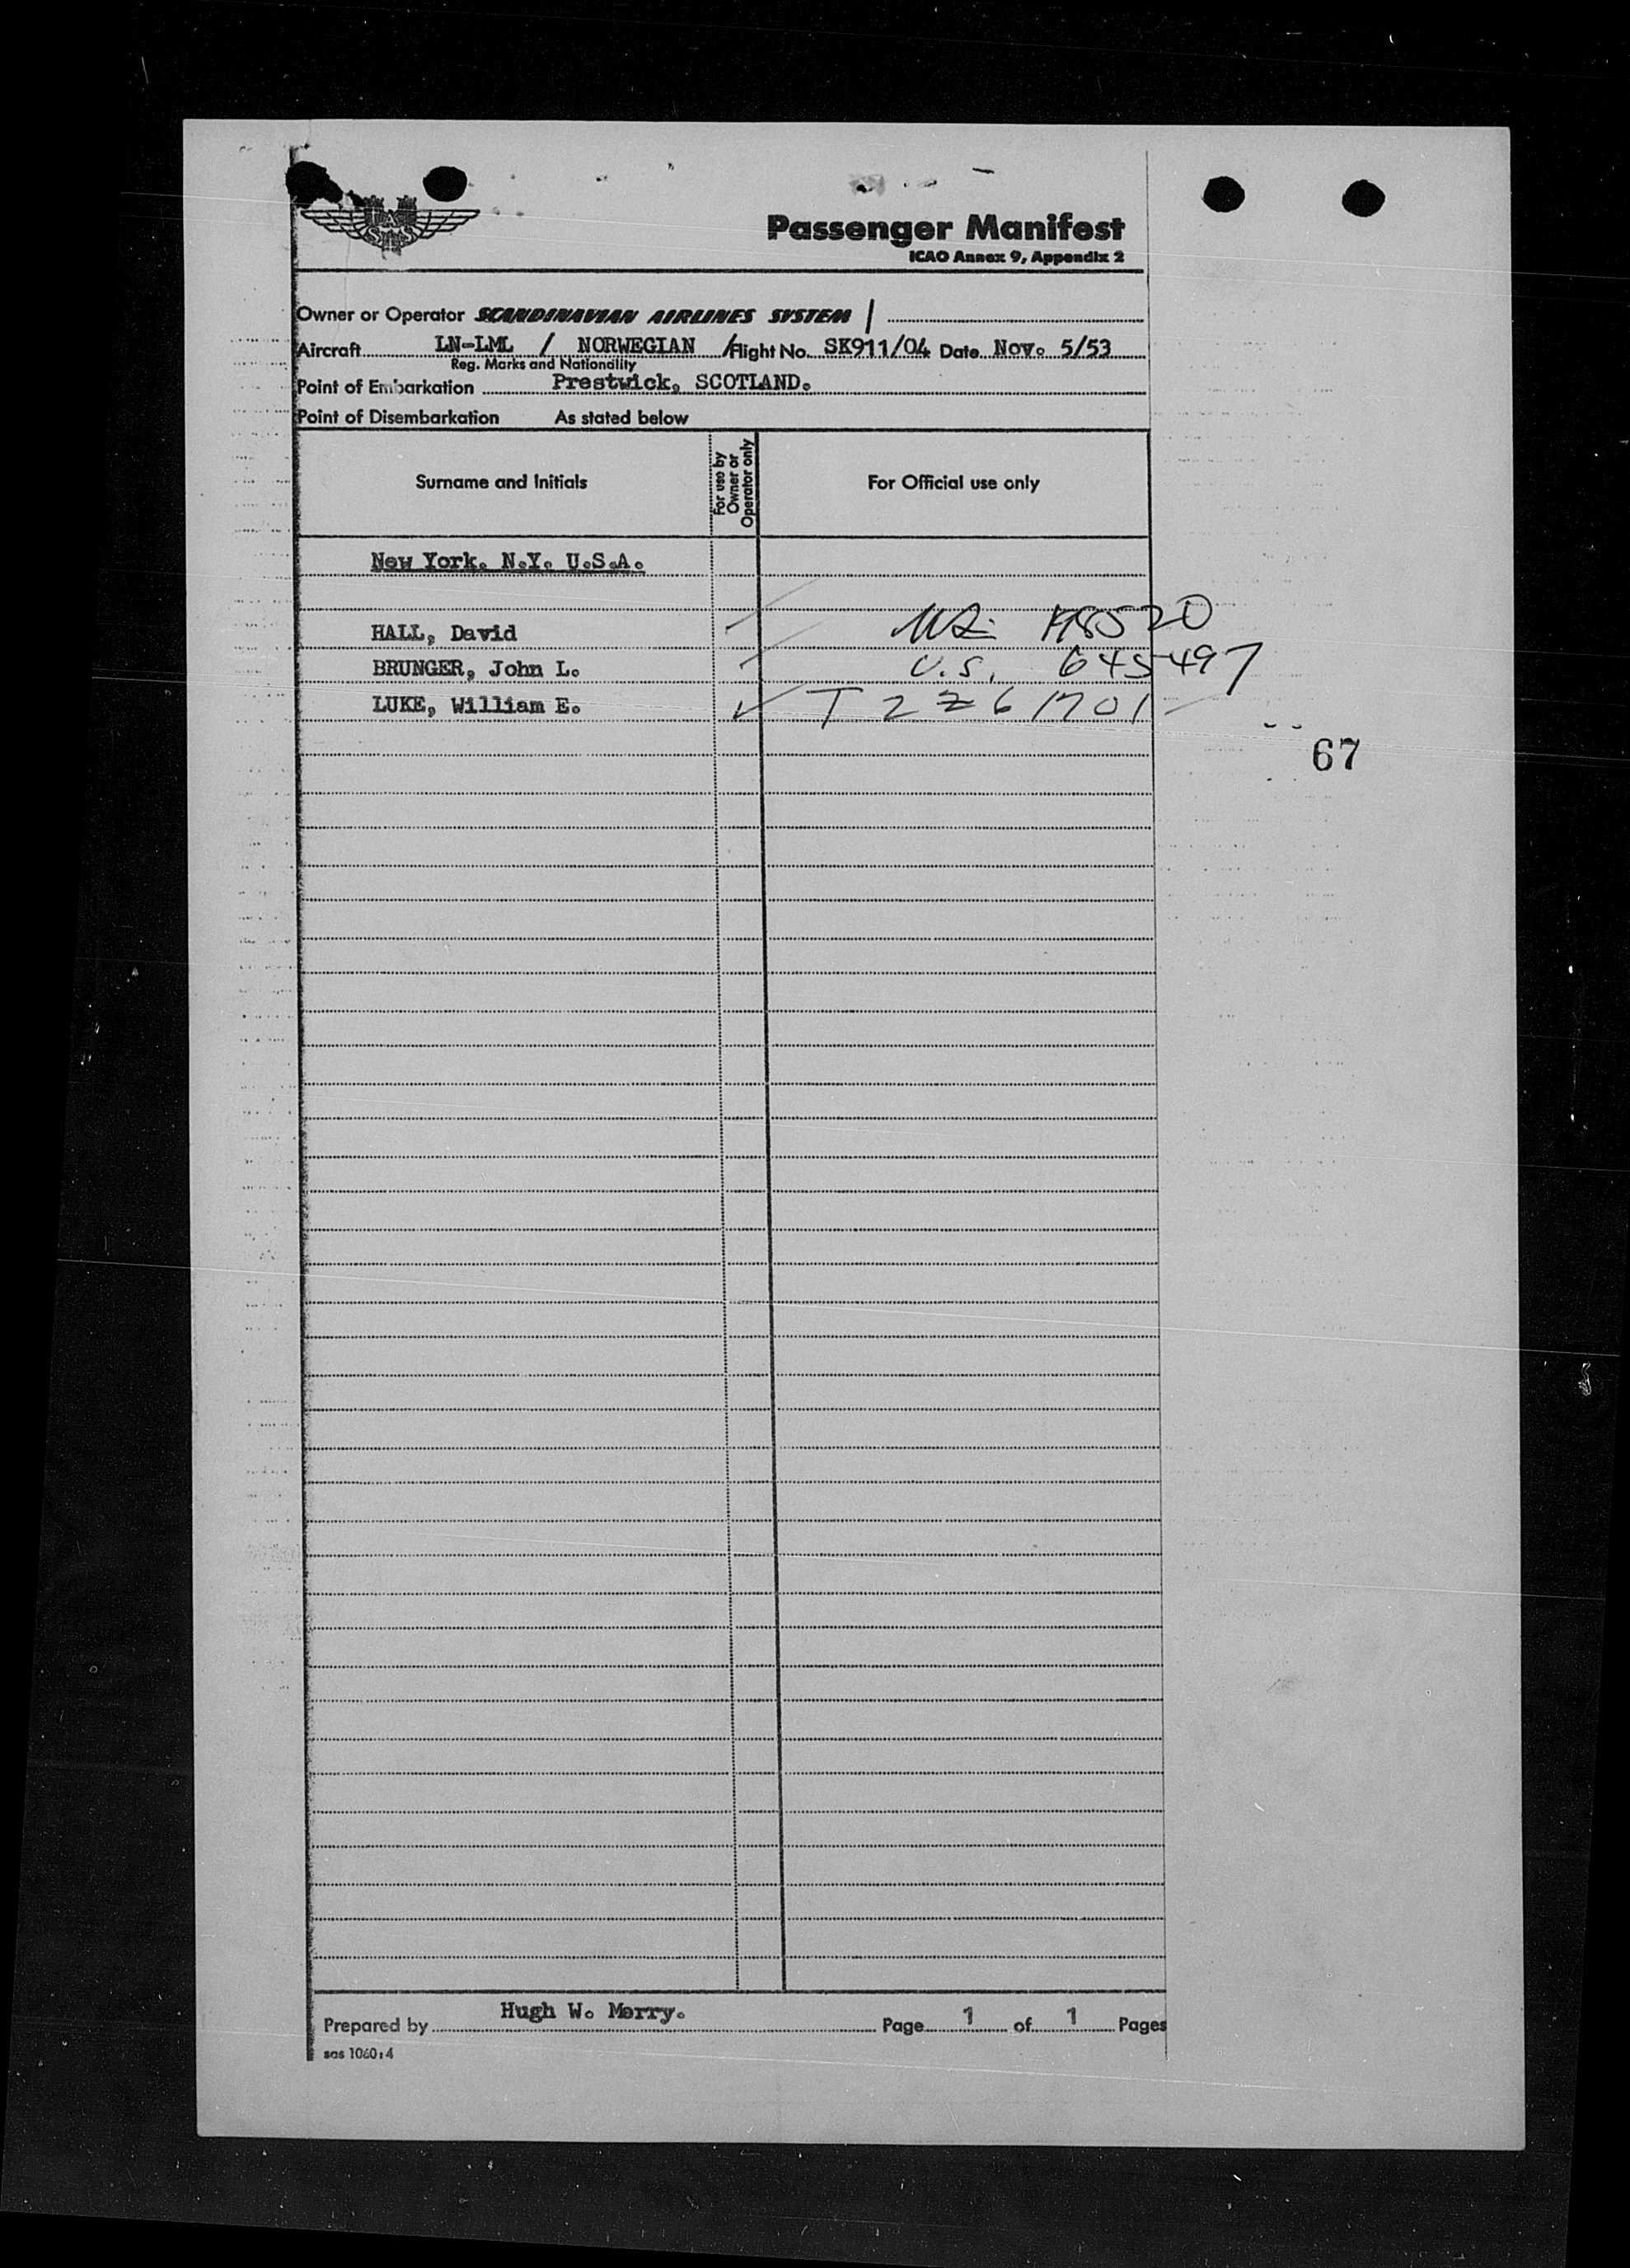 SAS
Passenger Manifest
ICAO Annex 9, Appendix 2
Owner or Operator SCANDINAVIAN AIRLINES SYSTEM /
Aircraft LN-LML / NORWEGIAN / Flight No. SK911/04 Date Nov. 5/53
Reg. Marks and Nationality
Point of Embarkation Prestwick, SCOTLAND.
Point of Disembarkation As stated below
Surname and Initials For use by Owner or Operator only For Official use only
New York. N.Y. U.S.A.
HALL, David 
BRUNGER, John L. U.S. 645497
LUKE, William E. ✓ T 2261701
67
Prepared by Hugh W. Merry. Page 1 of 1 Pages
sas 1060:4